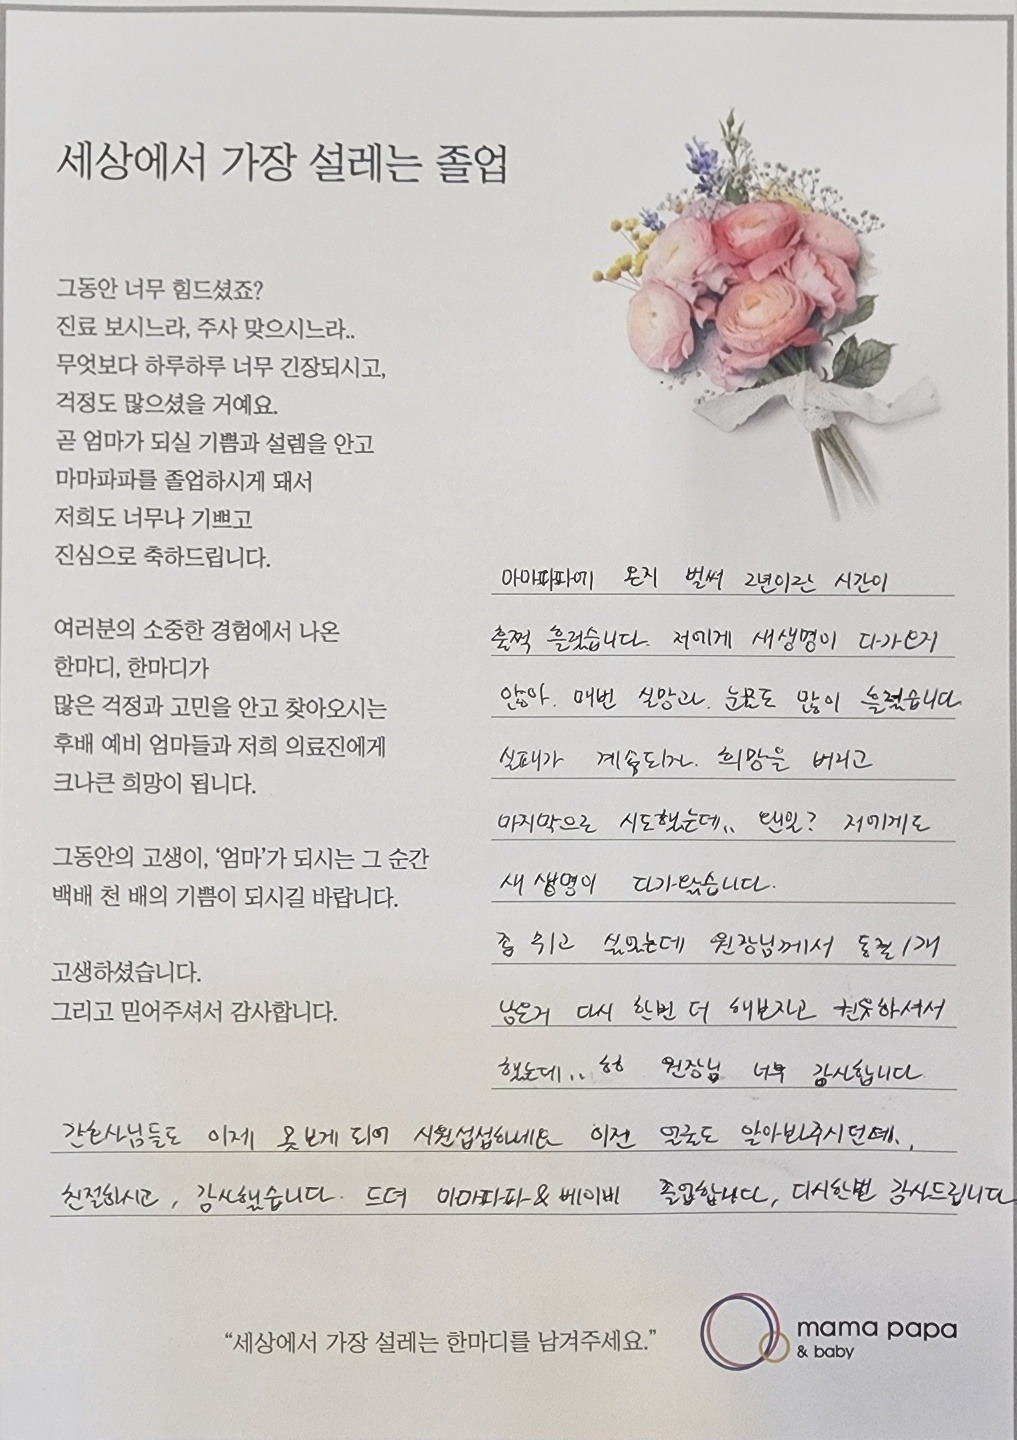 세상에서 가장 설레는 졸업
그동안 너무 힘드셨죠?
진료 보시느라, 주사 맞으시느라..
무엇보다 하루하루 너무 긴장되시고,
걱정도 많으셨을 거예요.
곧 엄마가 되실 기쁨과 설렘을 안고
마마파파를 졸업하시게 돼서
저희도 너무나 기쁘고
진심으로 축하드립니다.
여러분의 소중한 경험에서 나온
한마디, 한마디가
많은 걱정과 고민을 안고 찾아오시는
후배 예비 엄마들과 저희 의료진에게
크나큰 희망이 됩니다.
그동안의 고생이, ‘엄마’가 되시는 그 순간
백배 천 배의 기쁨이 되시길 바랍니다.
고생하셨습니다.
그리고 믿어주셔서 감사합니다.
마마파파에 온지 벌써 2년이란 시간이
훌쩍 흘렀습니다. 저에게 새생명이 다가오거
않아. 매번 실망과. 눈물도 많이 흘렸습니다
실패가 계속되자. 희망을 버리고
마지막으로 시도했는데.. 웬일? 저에게도
새 생명이 다가왔습니다.
좀 쉬고 싶었는데 원장님께서 동결 1개
남은거 다시 한번 더 해보자고 하셔서
했는데.. 원장님 너무 감사합니다
간호사님들도 이제 못보게 되어 시원섭섭하네요 이젠 얼굴도 알아봐주시던데..
친절하시고, 감사했습니다. 드뎌 마마파파&베이비 졸업합니다, 다시한번 감사드립니다
“세상에서 가장 설레는 한마디를 남겨주세요.”
mama papa
& baby